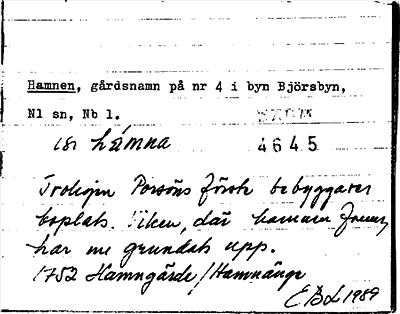 Hamnen, gårdsnamn på nr 4 i byn Björsbyn,
Nl sn, Nb l.
hámna
4645
Troligen Porsöns första bebyggares
boplats. Viken, där hamnen
har nu grundats upp.
1752 Hamngärde / Hamnänge
EBL 1989